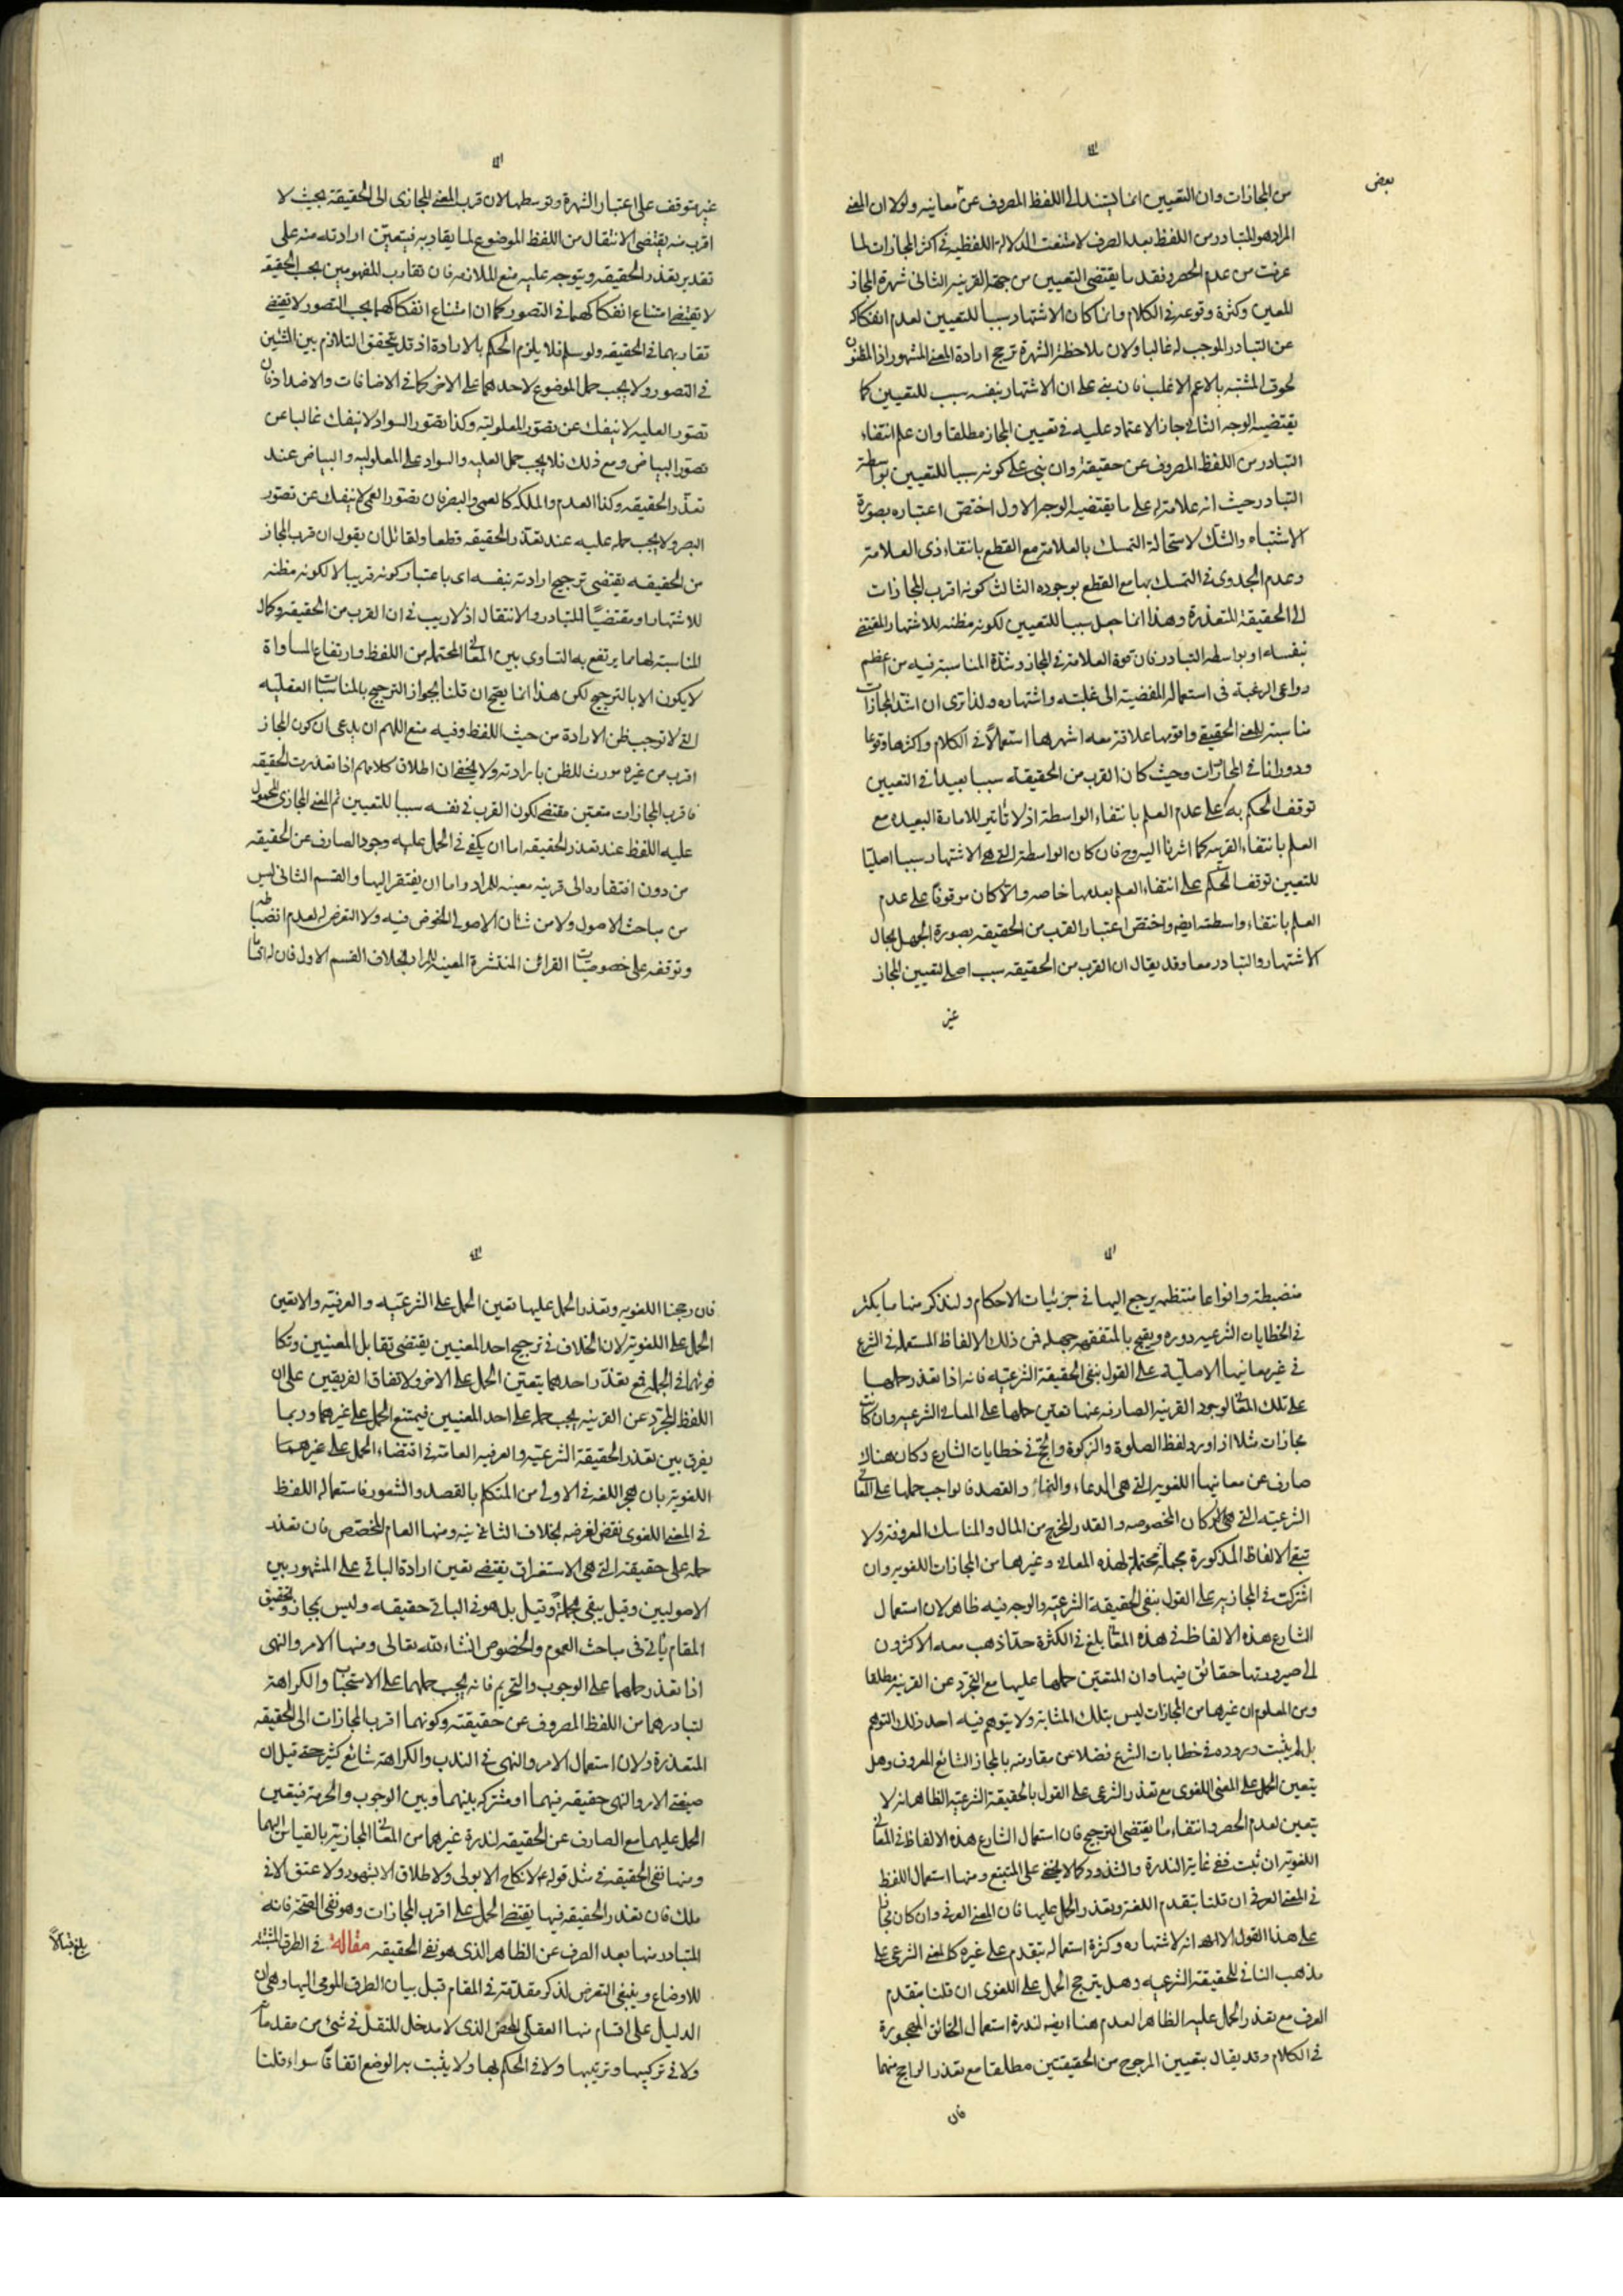 بعض
من المجازات وان التعيين انما يستند الى اللفظ المصروف عن معانيه ولولا ان المعنى
المراد هو المتبادر من اللفظ بعد الصرف لامتنعت الدلالة اللفظيه فى اكثر المجازات لما
عرفت من عدم الحصر وفقد ما يقتضى التعيين من جهة القرينه الثانى شهرة المجاز
المعين وكثرة وقوعه فى الكلام وانما كان الاشتهار سببا للتعيين لعدم انفكاكه
عن التبادر الموجب له غالبا ولان ملاحظة الشهرة ترجح ارادة المعنى المشهور اذ المظنون
لحوق المشتبه بالاعم الاغلب فان بنى على ان الاشتهار بنفسه سبب للتعيين كما
يقتضيه الوجه الثانى جاز الاعتماد عليه فى تعيين المجاز مطلقا وان علم انتفاء
التبادر من اللفظ المصروف عن حقيقته وان بنى على كونه سببا للتعيين بواسطة
التبادر حيث انه علامة له على ما يقتضيه الوجه الاول اختص اعتباره بصورة
الاشتباه والشك لاستحالة التمسك بالعلامة مع القطع بانتفاء ذى العلامة
وعدم الجدوى فى التمسك بها مع القطع بوجوده الثالث كونه اقرب المجازات
الى الحقيقة المتعذرة وهذا انما جعل سببا للتعيين لكونه مظنه للاشتهار المقتضى
بنفسه او بواسطة التبادر فان قوة العلاقة فى المجاز وشدة المناسبة فيه من اعظم
دواعى الرغبة فى استعماله المفضية الى غلبته واشتهاره ولذا ترى ان اشد المجازات
مناسبة للمعنى الحقيقى واقويها علاقة معه اشهرها استعمالا فى الكلام واكثرها وقوعا
ودورانا فى المحاورات وحيث كان القرب من الحقيقة سببا بعيدا فى التعيين
توقف الحكم به على عدم العلم بانتفاء الواسطة اذ لا تأثير للامارة البعيده مع
العلم بانتفاء القريبه كما اشرنا اليه وح فان كان الواسطة التى هى الاشتهار سببا اصليا
للتعيين توقف الحكم على انتفاء العلم بعدمها خاصه والا كان موقوفا على عدم
العلم بانتفاء واسطته ايضا واختص اعتبار القرب من الحقيقه بصورة الجهل بحال
الاشتهار والتبادر معا وقد يقال ان القرب من الحقيقه سبب اصلى لتعيين المجاز
غير
غير متوقف على اعتبار الشهرة وتوسطها لان قرب المعنى المجازى الى الحقيقة بحيث لا
اقرب منه يقتضى الانتقال من اللفظ الموضوع لما يقاربه فيتعين ارادته منه على
تقدير تعذر الحقيقه ويتوجه عليه منع الملازمه فان تقارب المفهومين بحسب الحقيقه
لا يقتضى امتناع انفكاكهما فى التصور كما ان امتناع انفكاكهما بحسب التصور لا يقتضى
تقاربهما فى الحقيقه ولو سلم فلا يلزم الحكم بالارادة اذ قد يتحقق التلازم بين الشئين
فى التصور ولا يجب حمل الموضوع لاحدهما على الاخر كما فى الاضافات والاضداد فان
تصور العليه لا ينفك عن تصور المعلولية وكذا تصور السواد لا ينفك غالبا عن
تصور البياض ومع ذلك فلا يجب حمل العليه والسواد على المعلوليه والبياض عند
تعذر الحقيقه وكذا العدم والملكه كالعمى والبصر فان تصور العمى لا ينفك عن تصور
البصر ولا يجب حمله عليه عند تعذر الحقيقه قطعا ولقائل ان يقول ان قرب المجاز
من الحقيقه يقتضى ترجيح ارادته بنفسه اى باعتبار كونه قريبا لا لكونه مظنه
للاشتهار او مقتضيا للتبادر والانتقال اذ لا ريب فى ان القرب من الحقيقه وكمال
المناسبة لها مما يرتفع به التساوى بين المعانى المحتمله من اللفظ وارتفاع المساواة
لا يكون الا بالترجيح لكن هذا انما يصح ان قلنا بجواز الترجيح بالمناسبات العقليه
التى لا توجب ظن الارادة من حيث اللفظ وفيه منع اللهم ان يدعى ان كون المجاز
اقرب من غيره مورث للظن بارادته ولا يخفى ان اطلاق كلامهم اذا تعذرت الحقيقه
فاقرب المجازات متعين مقتضى لكون القرب فى نفسه سببا للتعيين ثم المعنى المجازى المحمول
عليه اللفظ عند تعذر الحقيقه اما ان يكفى فى الحمل عليه وجود الصارف عن الحقيقه
من دون افتقاره الى قرينه معينه للمراد واما ان يفتقر اليها والقسم الثانى ليس
من مباحث الاصول ولا من شأن الاصولى الخوض فيه ولا التعرض له لعدم انضباطه
وتوقفه على خصوصيات القرائن المنتشرة المعينه للمراد بخلاف القسم الاول فان له اقساما
منضبطة وانواعا منتظمه يرجع اليها فى جزئيات الاحكام ولنذكر منها ما يكثر
فى الخطابات الشرعيه دوره ويقبح بالمتفقه جهله فمن ذلك الالفاظ المستعمله فى الشرع
فى غير معانيها الاصلية على القول بنفى الحقيقة الشرعيه فانه اذا تعذر حملها
على تلك المعانى لوجود القرينه الصارفه عنها تعين حملها على المعانى الشرعيه وان كانت
مجازات مثلا اذا ورد لفظ الصلوة والزكوة والحج فى خطابات الشارع وكان هناك
صارف عن معانيها اللغويه التى هى الدعاء والنماء والقصد فالواجب حملها على المعانى
الشرعيه التى هى الاركان المخصوصه والقدر المخرج من المال والمناسك المعروفة ولا
تبقى الالفاظ المذكورة مجملة محتملة لهذه المعانى وغيرها من المجازات اللغويه وان
اشتركت فى المجازيه على القول بنفى الحقيقة الشرعيه والوجه فيه ظاهر لان استعمال
الشارع هذه الالفاظ فى هذه المعانى بلغ فى الكثرة حدا ذهب معه الاكثرون
الى صيرورتها حقائق فيها وان المتعين حملها عليها مع التجرد عن القرينه مطلقا
ومن المعلوم ان غيرها من المجازات ليس بتلك المثابة ولا يتوهم فيه احد ذلك التوهم
بل لم يثبت وروده فى خطابات الشرع فضلا عن مقاومته بالمجاز الشائع المعروف وهل
يتعين الحمل على المعنى اللغوى مع تعذر الشرعى على القول بالحقيقة الشرعيه الظاهر انه لا
يتعين لعدم الحصر وانتفاء ما يقتضى الترجيح فان استعمال الشارع هذه الالفاظ فى المعانى
اللغوية ان ثبت ففى غاية الندرة والشذوذ كما لا يخفى على المتتبع ومنها استعمال اللفظ
فى المعنى العرفى ان قلنا بتقدم اللغة وتعذر الحمل عليها فان المعنى العرفى وان كان مجازا
على هذا القول الا انه لاشتهاره وكثرة استعماله يتقدم على غيره كالمعنى الشرعى على
مذهب النافى للحقيقة الشرعيه وهل يترجح الحمل على اللغوى ان قلنا بتقدم
العرف مع تعذر الحمل عليه الظاهر العدم هنا ايضا لندرة استعمال الحقائق المهجورة
فى الكلام وقد يقال بتعيين المرجوح من الحقيقتين مطلقا مع تعذر الراجح منهما
فان
فان رجحنا اللغويه وتعذر الحمل عليها تعين الحمل على الشرعيه والعرفية والا تعين
الحمل على اللغوية لان الخلاف فى ترجيح احد المعنيين يقتضى تقابل المعنيين وتكا
فوئهما فى الجمله فمع تعذر احدهما يتعين الحمل على الاخر ولاتفاق الفريقين على ان
اللفظ المجرد عن القرينه يجب حمله على احد المعنيين فيمتنع الحمل على غيرهما وربما
يفرق بين تعذر الحقيقة الشرعيه والعرفيه العامة فى اقتضاء الحمل على غيرهما
اللغوية بان هجر اللغه فى الاولى من المتكلم بالقصد والشعور فاستعماله اللفظ
فى المعنى اللغوى نقض لغرضه بخلاف الثانية ومنها العام المخصص فان تعذر
حمله على حقيقته التى هى الاستغراق يقتضى تعين ارادة الباقى على المشهور بين
الاصوليين وقيل يبقى مجملا وقيل بل هو فى الباقى حقيقه وليس بمجاز وتحقيق
المقام يأتى فى مباحث العموم والخصوص انشاء الله تعالى ومنها الامر والنهى
اذا تعذر حملهما على الوجوب والتحريم فانه يجب حملهما على الاستحباب والكراهة
لتبادرهما من اللفظ المصروف عن حقيقته وكونهما اقرب المجازات الى الحقيقه
المتعذرة ولان استعمال الامر والنهى فى الندب والكراهة شائع كثير حتى قيل ان
صيغتى الامر والنهى حقيقه فيهما او مشتركه بينهما وبين الوجوب والحرمة فيتعين
الحمل عليهما مع الصارف عن الحقيقه لندرة غيرهما من المعانى المجازية بالقياس اليهما
ومنها نفى الحقيقه فى مثل قوله ع لا نكاح الا بولى ولا طلاق الا بشهود ولا عتق الا فى
ملك فان تعذر الحقيقه فيها يقتضى الحمل على اقرب المجازات وهو نفى الصحة فانه
المتبادر منها بعد الصرف عن الظاهر الذى هو نفى الحقيقه مقالة فى الطرق المثبته
للاوضاع وينبغى التعرض لذكر مقدمة فى المقام قبل بيان الطرق المومى اليها وهى ان
الدليل على اقسام منها العقلى المحض الذى لا مدخل للنقل فى شئ من مقدماته
ولا فى تركيبها وترتيبها ولا فى الحكم بها ولا يثبت به الوضع اتفاقا سواء قلنا
بلغ قبالا